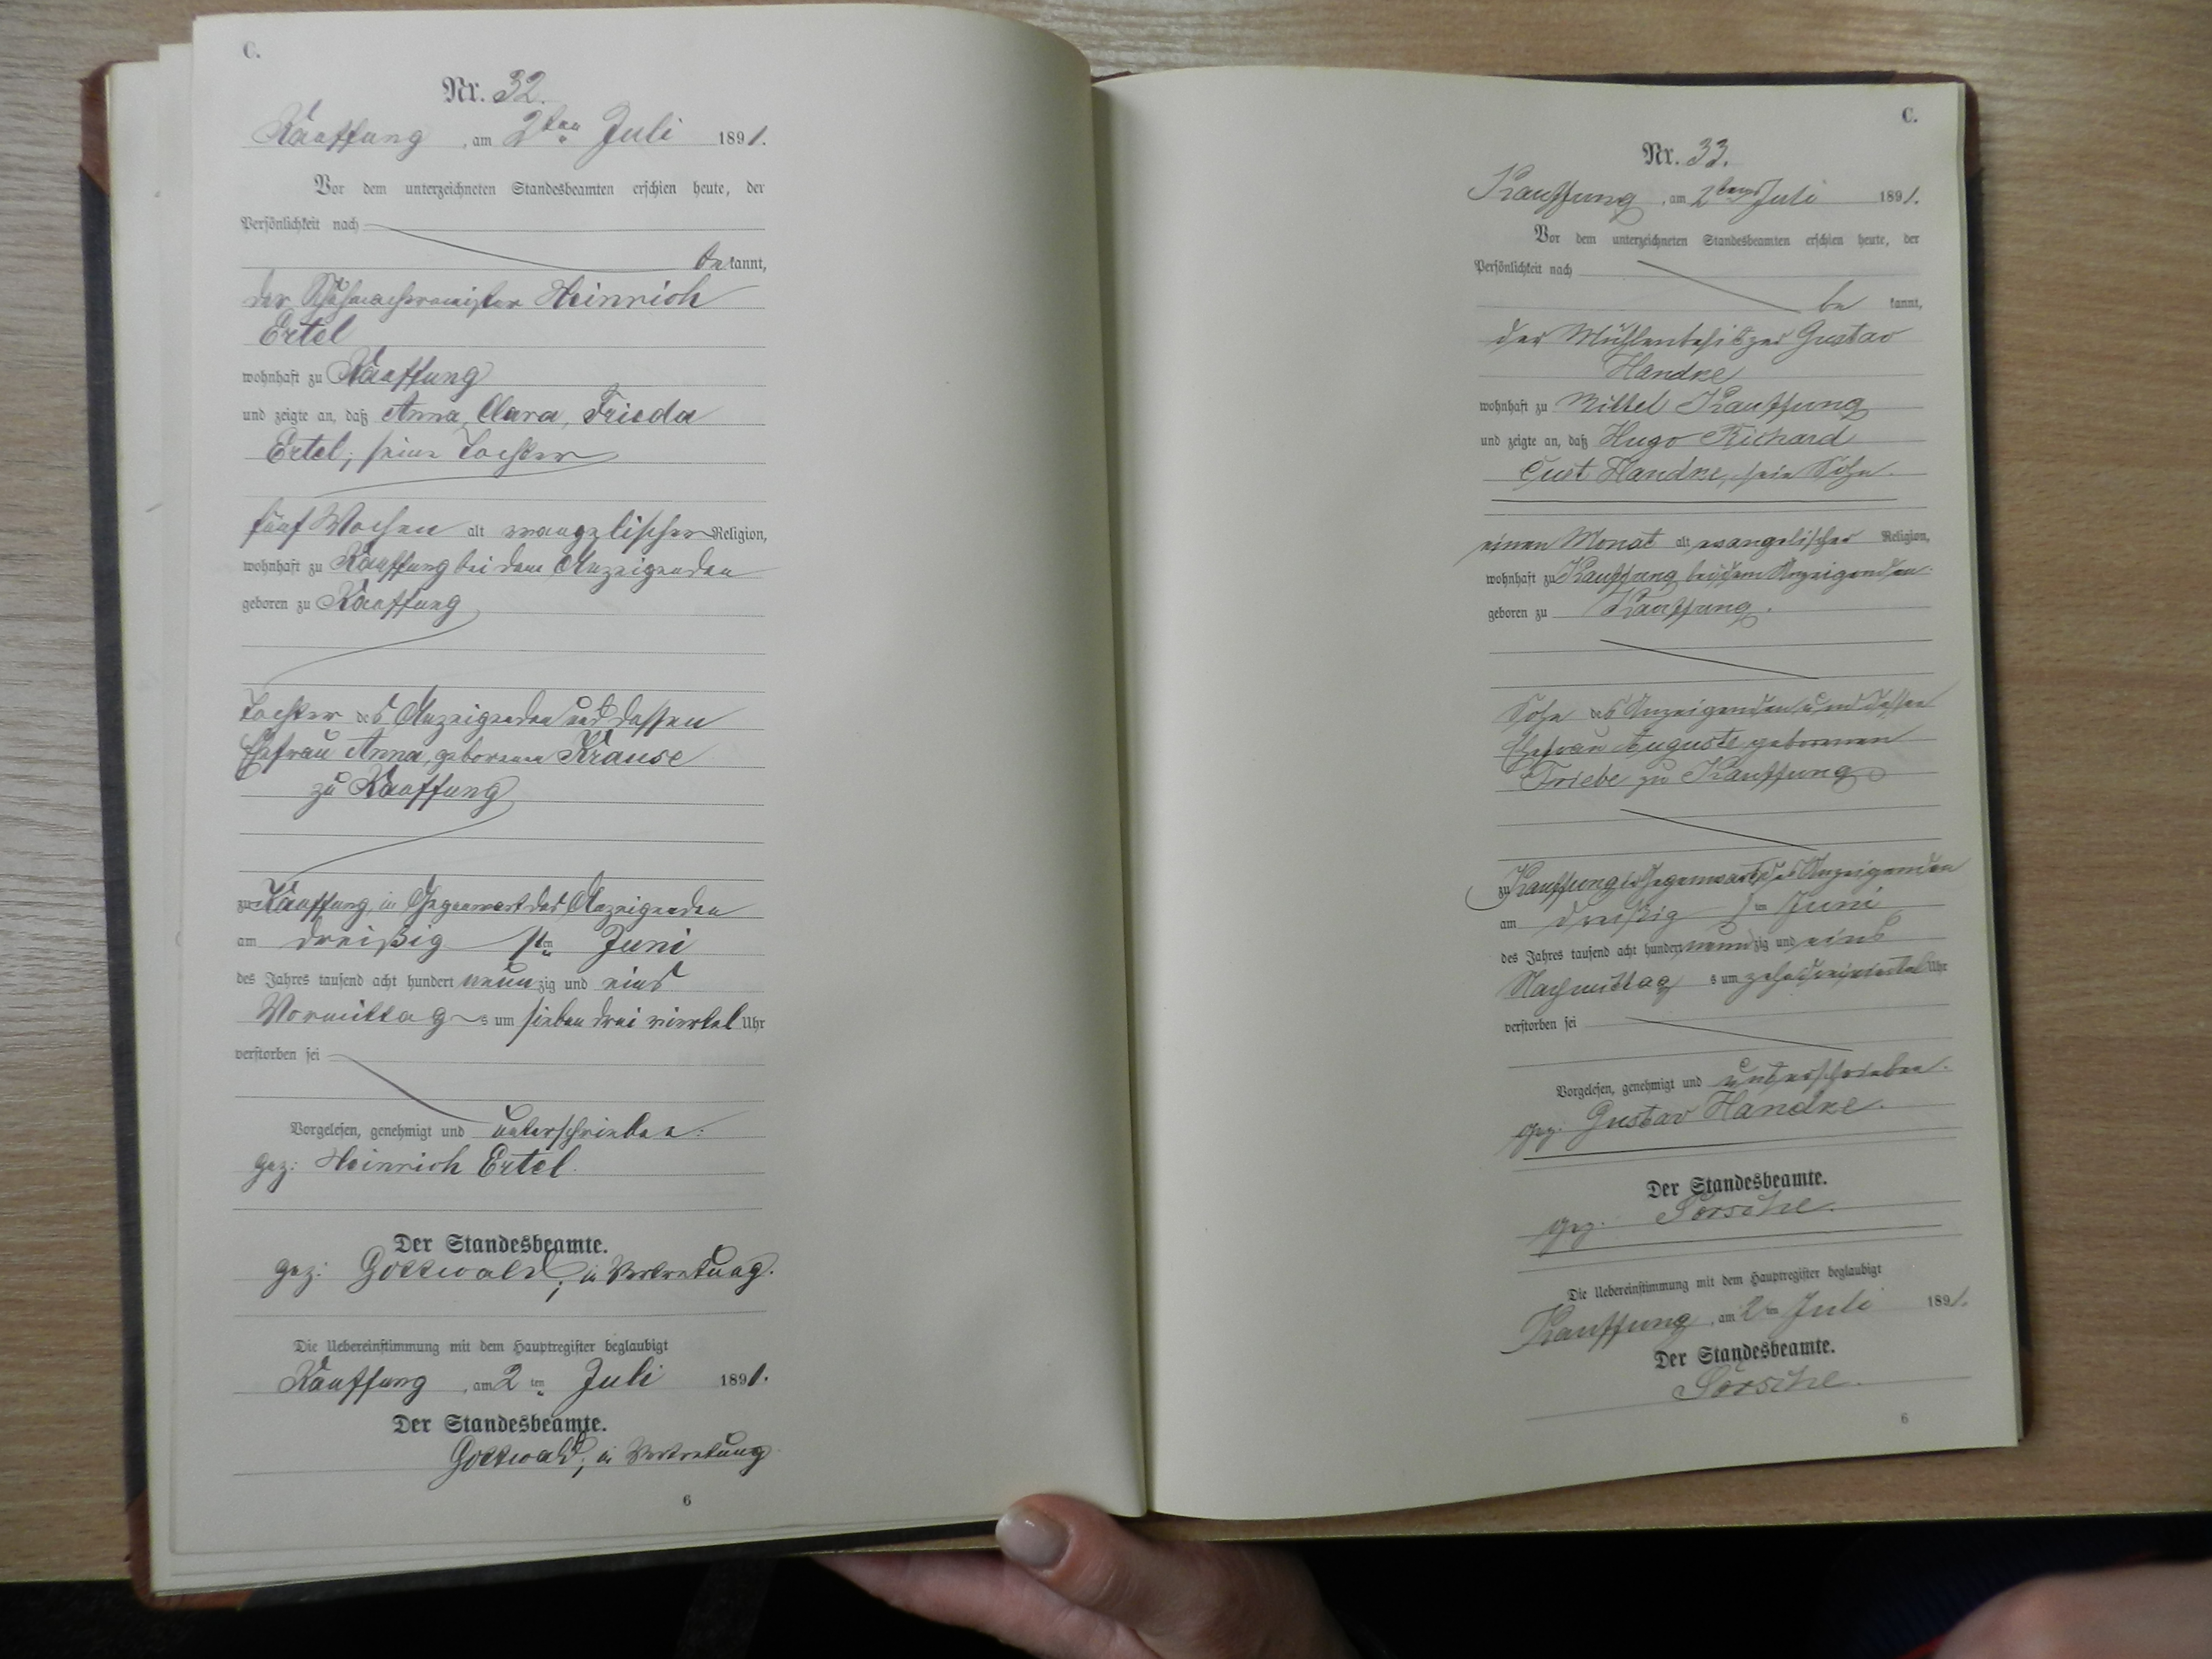 C.
Nr. 32.
Kauffung, am 2ten Juli 1891.
Vor dem unterzeichneten Standesbeamten erschien heute, der
Persönlichkeit nach
bekannt,
der Schuhmachermeister Heinrich
Ertel
wohnhaft zu Kauffung
und zeigte an, daß Anna, Clara, Frieda
Ertel, seine Tochter
fünf Wochen alt evangelischer Religion,
wohnhaft zu Kauffung bei dem Anzeigenden
geboren zu Kauffung
Tochter des Anzeigenden und dessen
Ehefrau Anna, geborenen Krause
zu Kauffung
zu Kauffung, in Gegenwart des Anzeigenden
am dreißig sten Juni
des Jahres tausend acht hundert neunzig und eins
Vormittags um sieben drei viertel Uhr
verstorben sei
Vorgelesen, genehmigt und unterschrieben.
gez: Heinrich Ertel.
Der Standesbeamte.
gez: Gottwald, in Vertretung.
Die Uebereinstimmung mit dem Hauptregister beglaubigt
Kauffung, am 2ten Juli 1891.
Der Standesbeamte.
Gottwald, in Vertretung
6
C.
Nr. 33.
Kauffung, am 2ten Juli 1891.
Vor dem unterzeichneten Standesbeamten erschien heute, der
Persönlichkeit nach
be kannt,
der Mühlenbesitzer Gustav
Handke
wohnhaft zu Mittel Kauffung
und zeigte an, daß Hugo Richard
Curt Handke, sein Sohn.
einen Monat alt evangelischer Religion,
wohnhaft zu Kauffung bei dem Anzeigenden
geboren zu Kauffung.
Sohn des Anzeigenden und dessen
Ehefrau Auguste geborenen
Friebe zu Kauffung
zu Kauffung in Gegenwart des Anzeigenden
am dreißig sten Juni
des Jahres tausend acht hundert neunzig und eins
Nachmittags um zehn dreiviertel Uhr
verstorben sei
Vorgelesen, genehmigt und unterschrieben.
gez. Gustav Handke.
Der Standesbeamte.
gez.
Die Uebereinstimmung mit dem Hauptregister beglaubigt
Kauffung, am 2ten Juli 1891.
Der Standesbeamte.
6